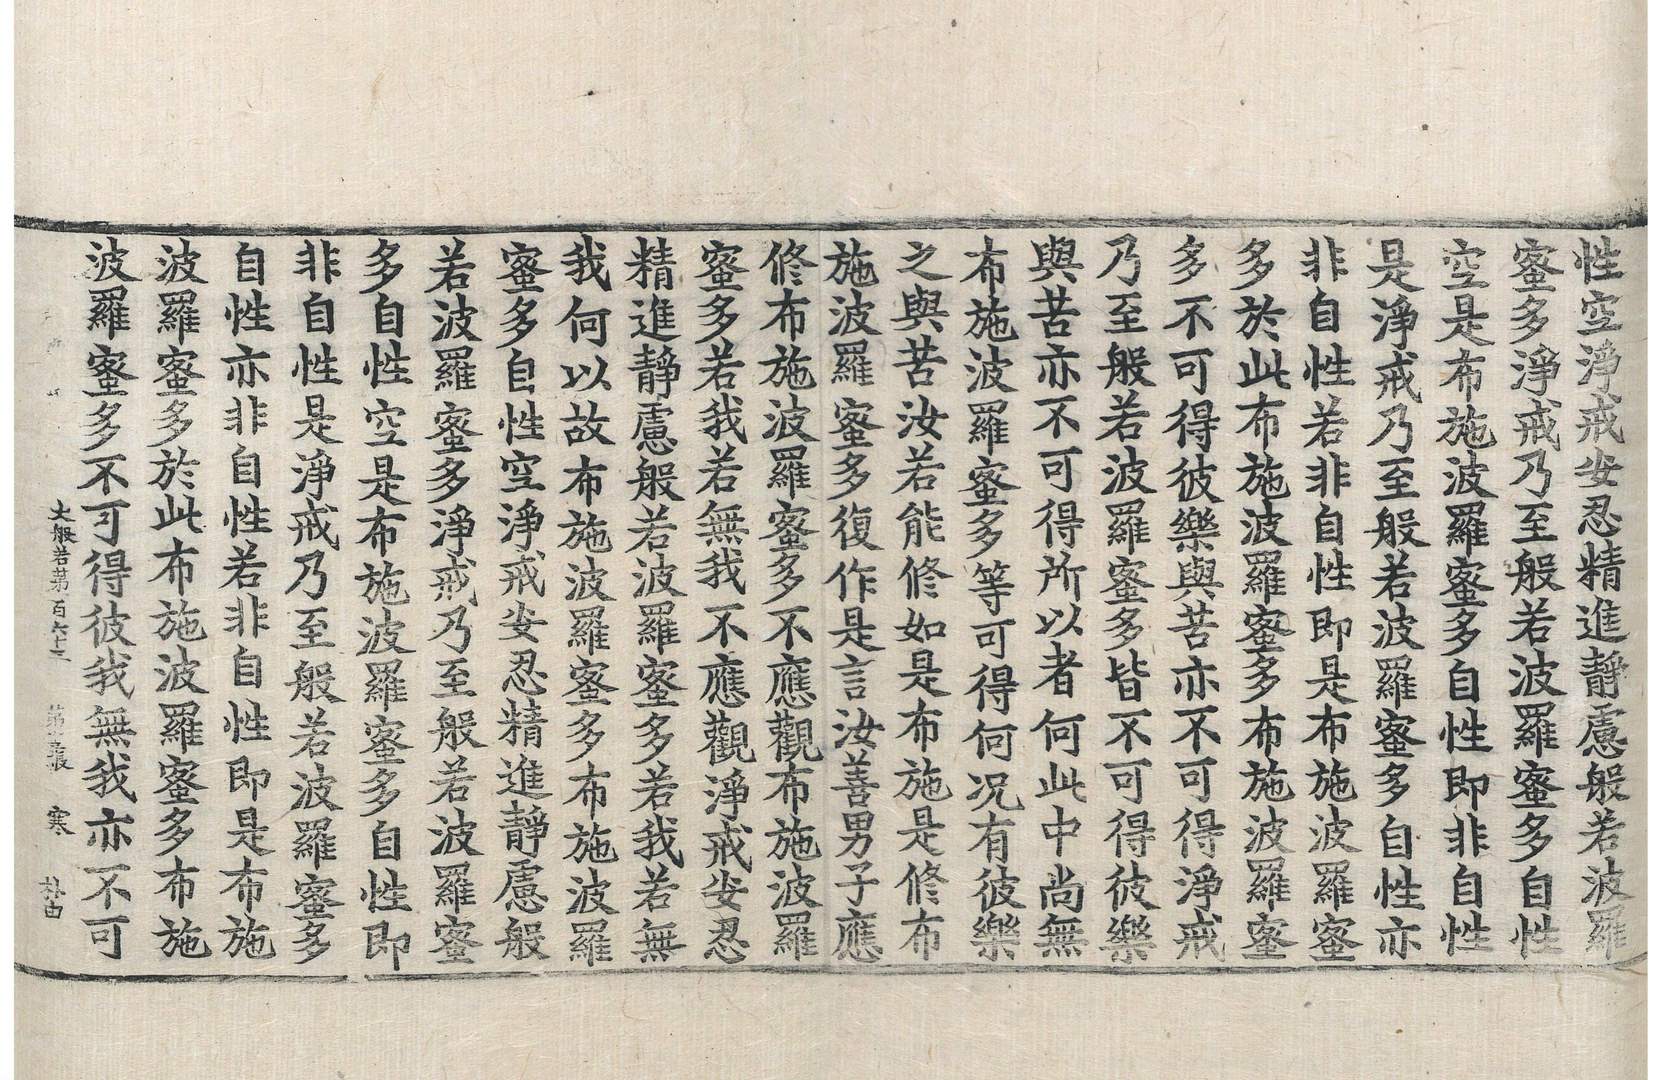 性空淨戒安忍精進靜慮般若波羅
蜜多淨戒乃至般若波羅蜜多自性
空是布施波羅蜜多自性即非自性
是淨戒乃至般若波羅蜜多自性亦
非自性若非自性即是布施波羅蜜
多於此布施波羅蜜多布施波羅蜜
多不可得彼樂與苦亦不可得淨戒
乃至般若波羅蜜多皆不可得彼樂
與苦亦不可得所以者何此中尚無
布施波羅蜜多等可得何况有彼樂
之與苦汝若能修如是布施是修布
施波羅蜜多復作是言汝善男子應
修布施波羅蜜多不應觀布施波羅
蜜多若我若無我不應觀淨戒安忍
精進靜慮般若波羅蜜多若我若無
我何以故布施波羅蜜多布施波羅
蜜多自性空淨戒安忍精進靜慮般
若波羅蜜多淨戒乃至般若波羅蜜
多自性空是布施波羅蜜多自性即
非自性是淨戒乃至般若波羅蜜多
自性亦非自性若非自性即是布施
波羅蜜多於此布施波羅蜜多布施
波羅蜜多不可得彼我無我亦不可
大般若第百六十三 第 張 寒